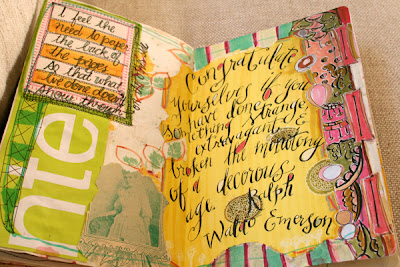 I feel the
need to paper
the back of
the paper
so that what
show
nie
Congratulate
yourselves if you
have done
something strange,
extravagant &
broken the monotony
of a decorous
age. Ralph
Waldo Emerson